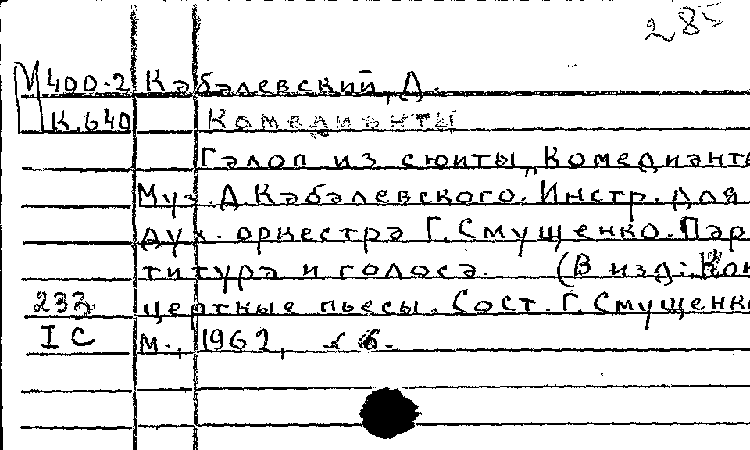 285
М400-2 Кабалевский, Д.
К.640 Комедианты
Галоп из сюиты „Комедианты
Муз. Д.Кабалевского. Инстр. для
дух. оркестра Г.Смущенко. Пар
титура и голоса. (В изд.: Кон
233 цертные пьесы. Сост. Г.Смущенко
IC М., 1962,